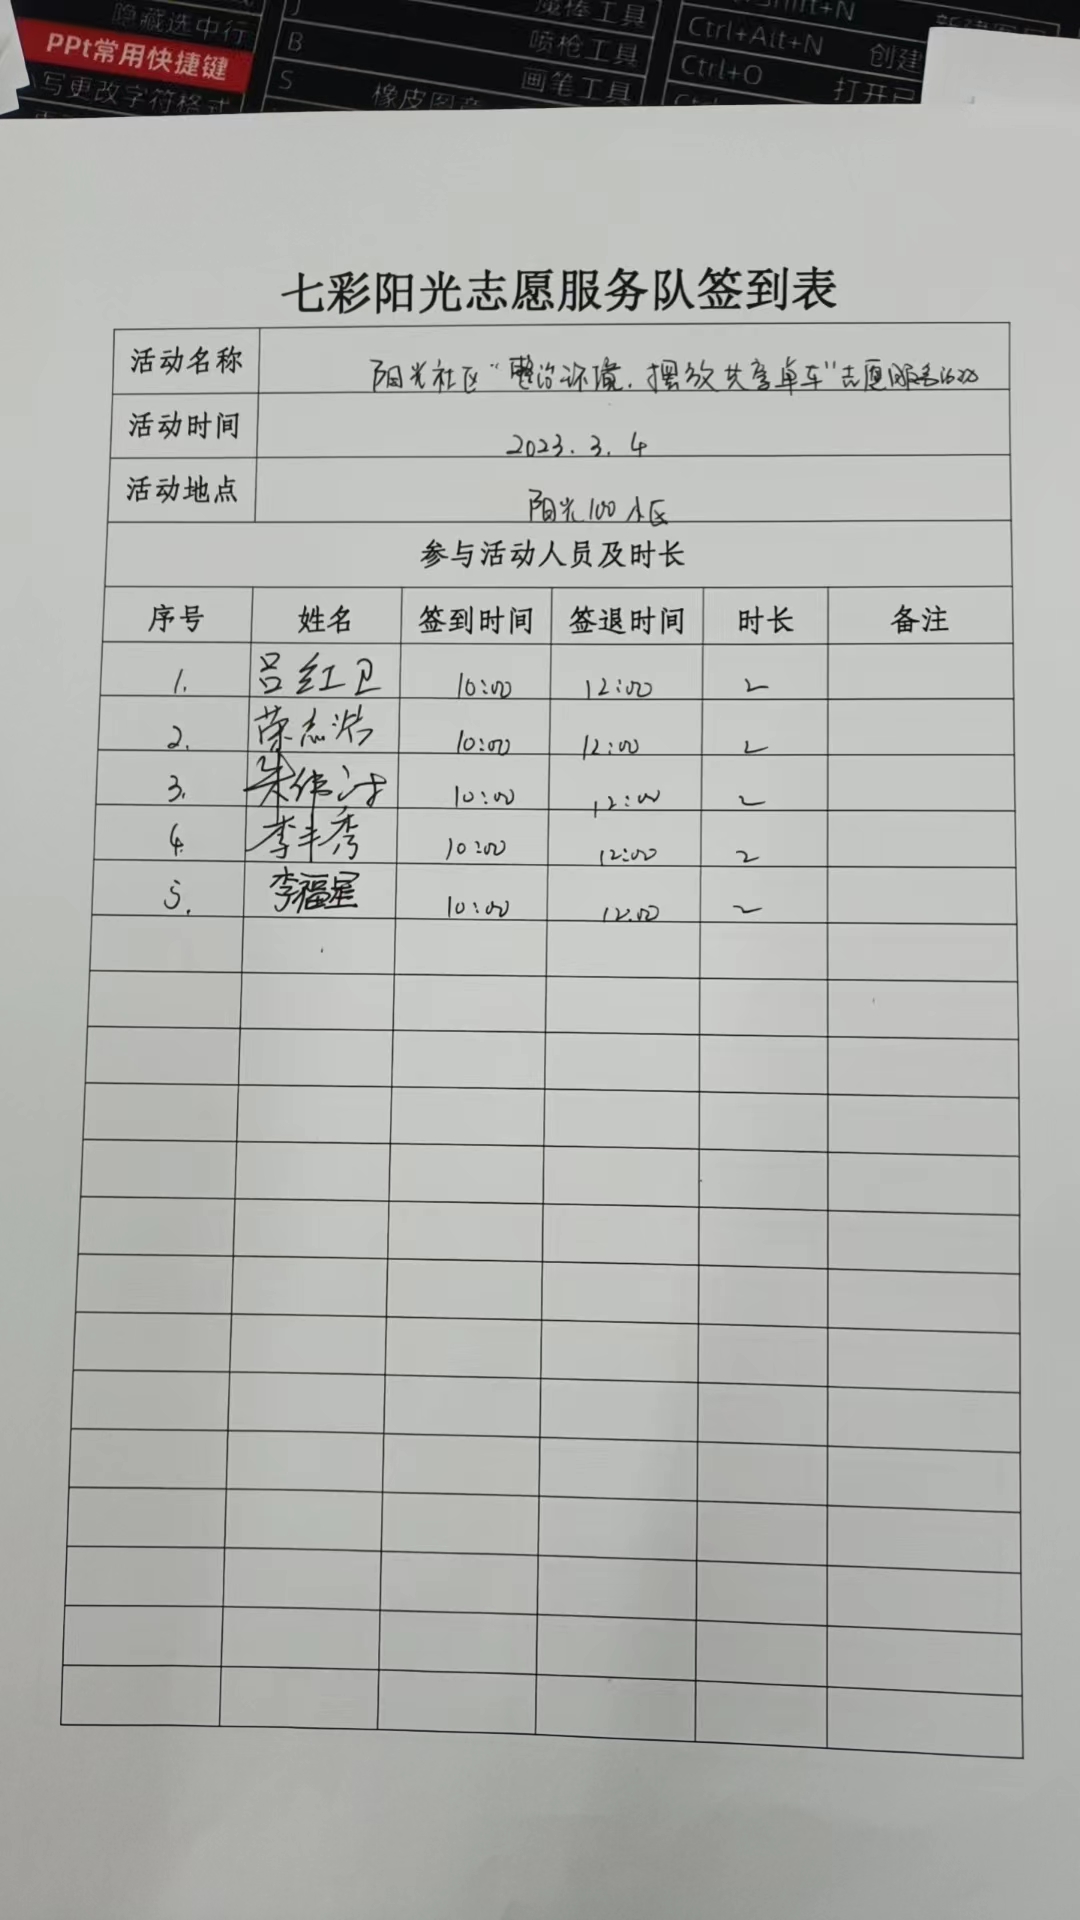 隐藏选中行
PPt常用快捷键
写更改字符格式
J
魔棒工具
B
喷枪工具
S
橡皮图章
画笔工具
Shift+N
Ctrl+Alt+N
创建
Ctrl+O
打开已
七彩阳光志愿服务队签到表
活动名称 阳光社区“整治环境，摆放共享单车”志愿服务活动
活动时间 2023.3.4
活动地点 阳光100小区
参与活动人员及时长
序号 姓名 签到时间 签退时间 时长 备注
1. 吕红卫 10:00 12:00 2
2. 荣志浩 10:00 12:00 2
3. 朱伟 10:00 12:00 2
4. 李丰秀 10:00 12:00 2
5. 李福星 10:00 12:00 2